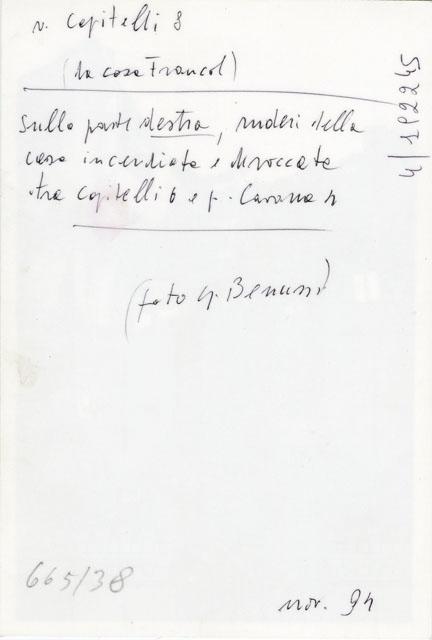 v. Capitelli 8
(la casa Francol)
sulla parte destra, ruderi della
casa incendiata e diroccata
tra Capitelli 6 e p. Cavana 4
(foto G. Benussi)
4/192245
665/38
nov. 94